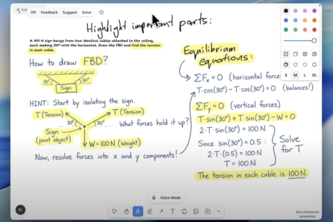 Exit
DIY
Feedback
Suggest
Solve
Highlight important parts:
A 100 N sign hangs from two identical cables attached to the ceiling,
each making 30° with the horizontal. Draw the FBD and find the tension
in each cable.
How to draw FBD?
30° 30°
Sign
HINT: Start by isolating the sign.
T (Tension) T (Tension)
30° 30°
What forces hold it up?
Sign
(point object)
W = 100 N (Weight)
Now, resolve forces into x and y components!
Equilibrium
Equations:
ΣFₓ = 0 (horizontal forces)
T·cos(30°) - T·cos(30°) = 0 (balances!)
ΣFᵧ = 0 (vertical forces)
T·sin(30°) + T·sin(30°) - W = 0
2·T·sin(30°) = 100 N
Since sin(30°) = 0.5:
2·T·(0.5) = 100 N
T = 100 N
Solve
for T
The tension in each cable is 100 N.
S M L XL
Voice Mode